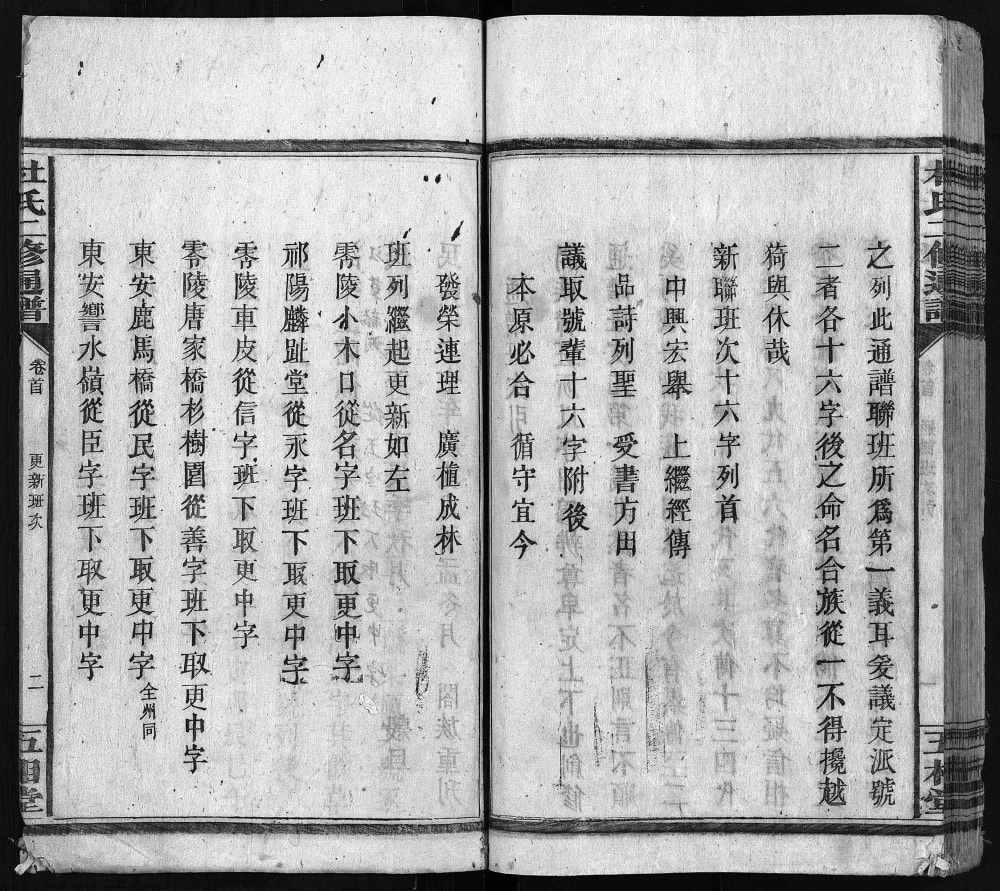 杜氏二修通譜
五桂堂
之列此通譜聯班所爲第一義耳爰議定派號
二者各十六字後之命名合族從一不得攙越
猗與休哉
新聯班次十六字列首
中興宏舉　上繼經傳
品詩列聖　受書方田
議取號輩十六字附後
本原必合　循守宜今
發榮連理　廣植成林
班列繼起更新如左
零陵小木口從名字班下取更中字
祁陽麟趾堂從永字班下取更中字
零陵車皮從信字班下取更中字
零陵唐家橋杉樹園從善字班下取更中字
東安鹿馬橋從民字班下取更中字全州同
東安響水嶺從臣字班下取更中字
杜氏二修通譜
卷首
更新班次
二
五桂堂